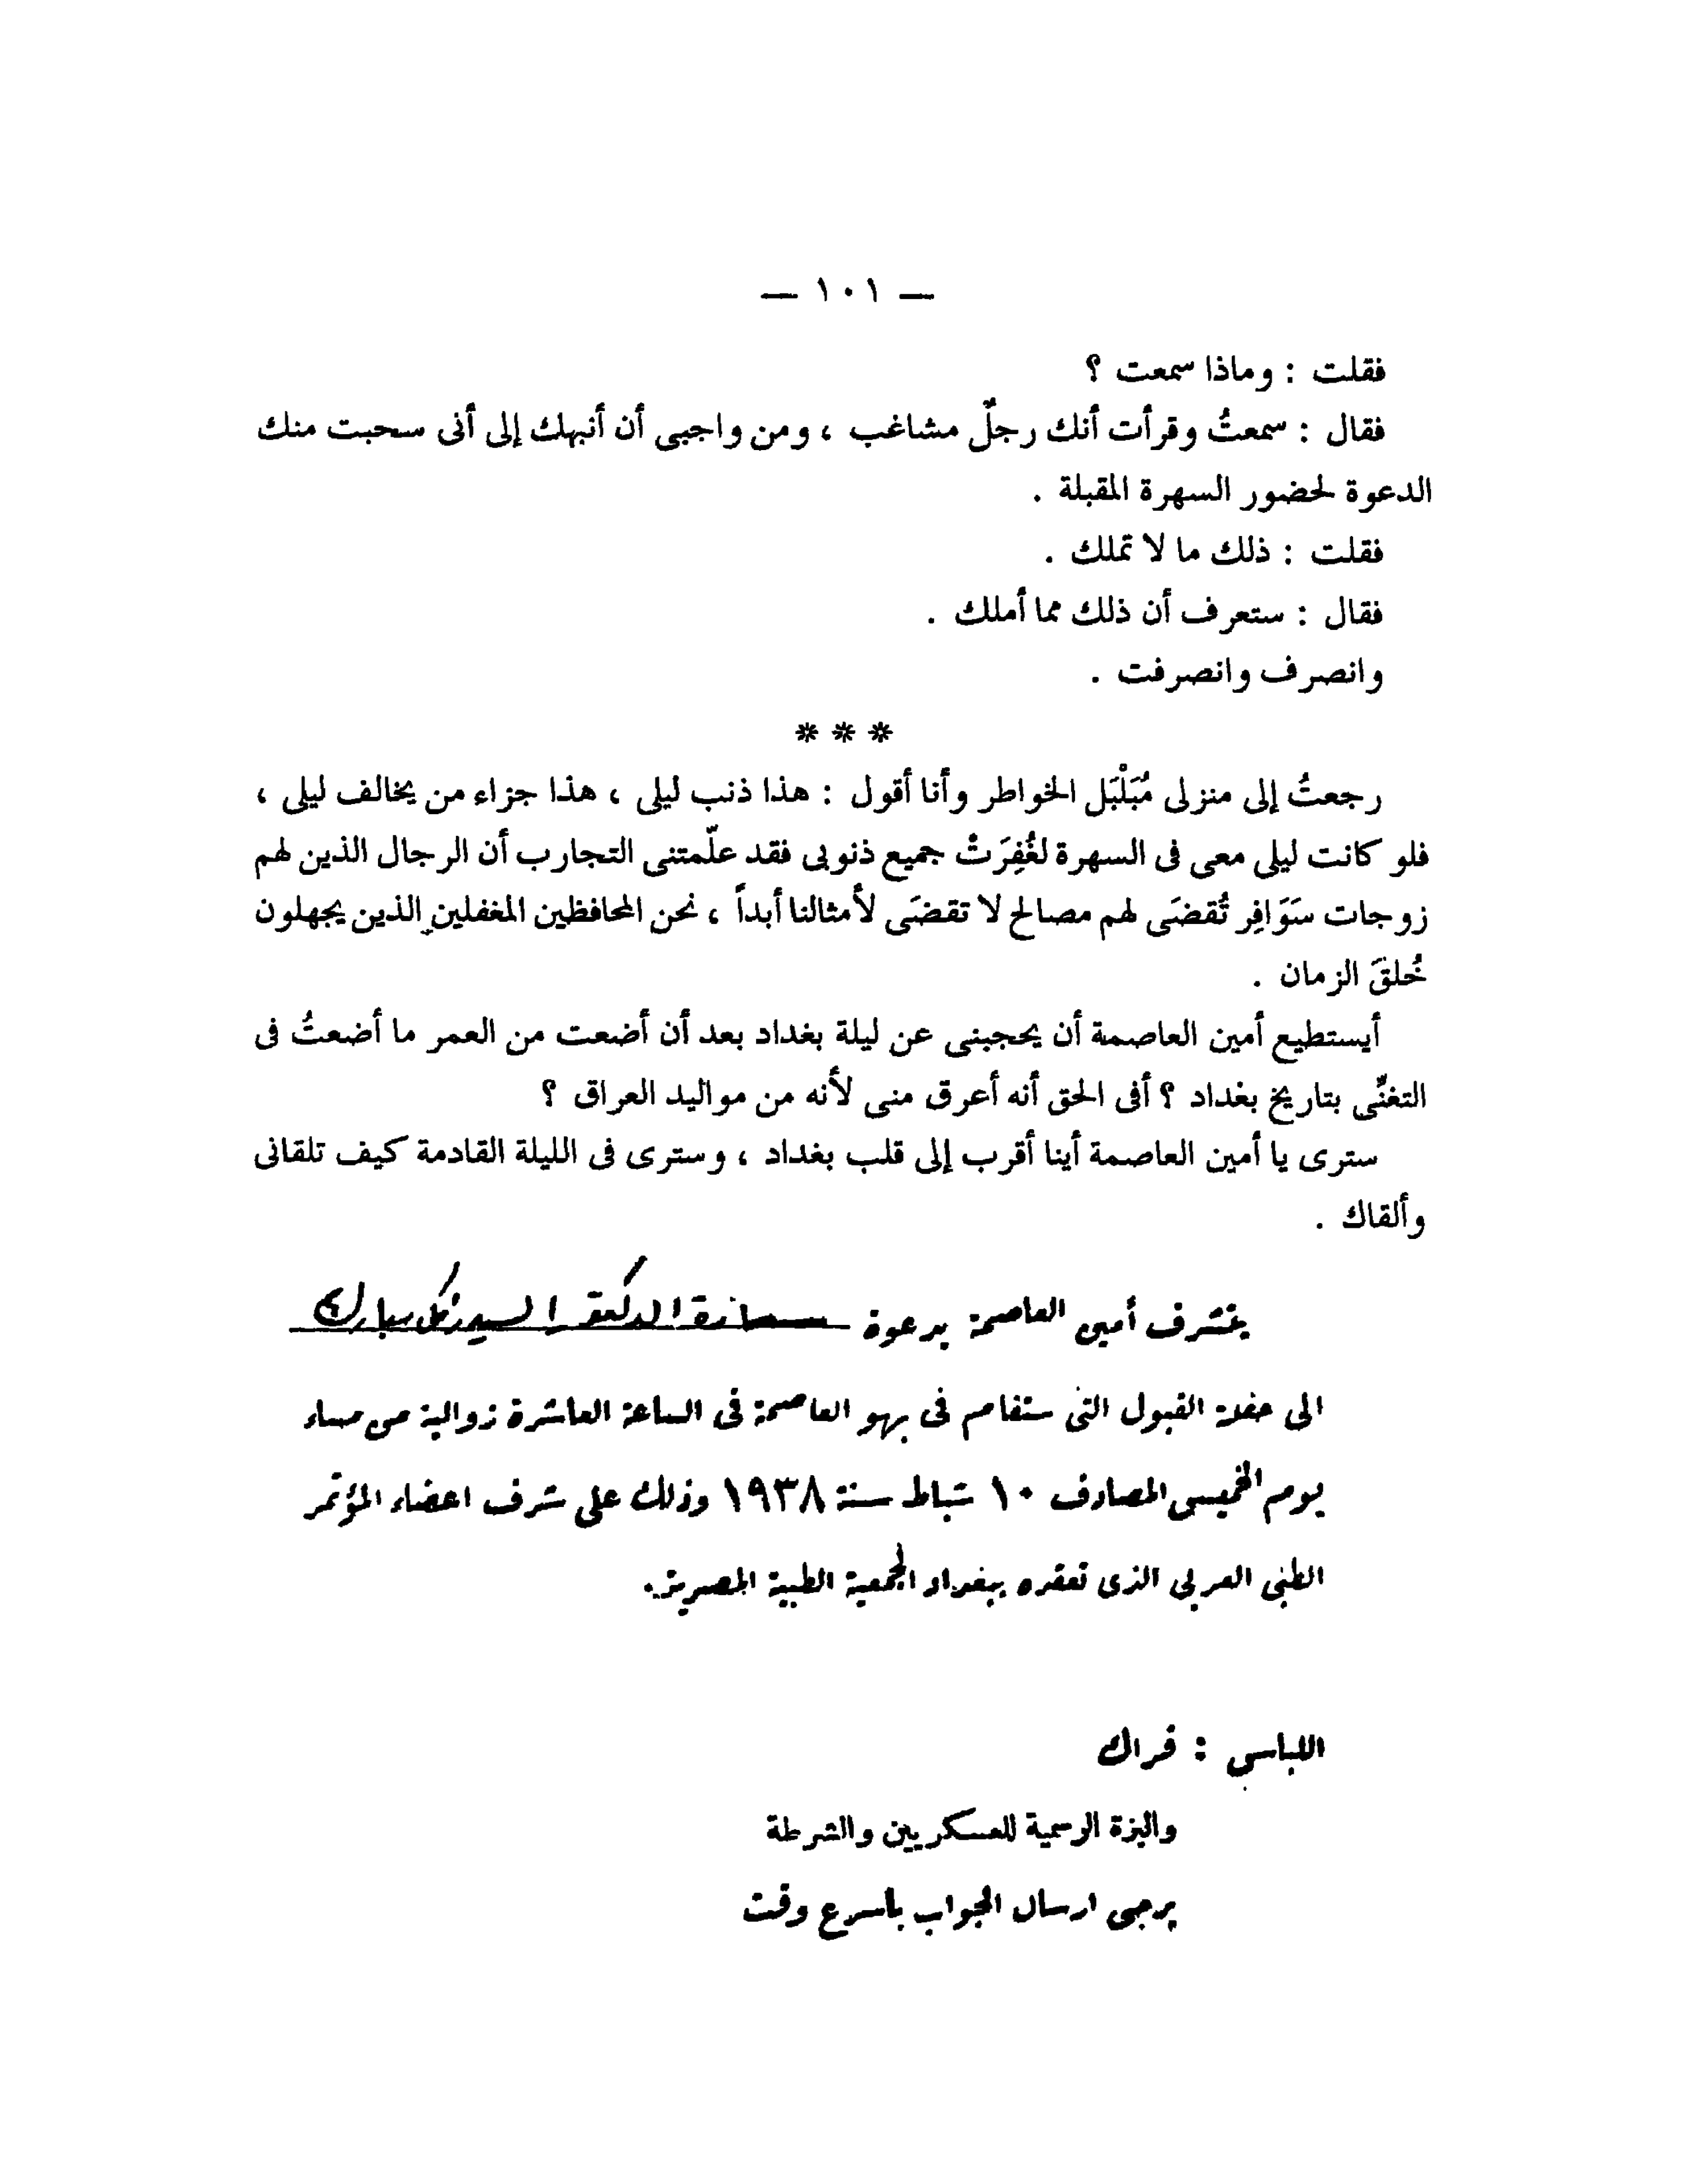 — ١٠١ —
فقلت : وماذا سمعت ؟
فقال : سمعتُ وقرأت أنك رجلٌ مشاغب ، ومن واجبى أن أنبهك إلى أنى سحبت منك
الدعوة لحضور السهرة المقبلة .
فقلت : ذلك ما لا تملك .
فقال : ستعرف أن ذلك مما أملك .
وانصرف وانصرفت .
* * *
رجعتُ إلى منزلى مُبَلْبَل الخواطر وأنا أقول : هذا ذنب ليلى ، هذا جزاء من يخالف ليلى ،
فلو كانت ليلى معى فى السهرة لغُفِرَتْ جميع ذنوبى فقد علّمتنى التجارب أن الرجال الذين لهم
زوجات سَوَافِر تُقضَى لهم مصالح لا تقضَى لأمثالنا أبداً ، نحن المحافظين المغفلين الذين يجهلون
خُلقَ الزمان .
أيستطيع أمين العاصمة أن يحجبنى عن ليلة بغداد بعد أن أضعت من العمر ما أضعتُ فى
التغنِّى بتاريخ بغداد ؟ أفى الحق أنه أعرق منى لأنه من مواليد العراق ؟
سترى يا أمين العاصمة أينا أقرب إلى قلب بغداد ، وسترى فى الليلة القادمة كيف تلقانى
وألقاك .
يتشرف أمين العاصمة بدعوة سعادة الدكتور السيد زكى مبارك
الى حفلة القبول التى ستقام فى بهو العاصمة فى الساعة العاشرة زوالية من مساء
يوم الخميس المصادف ١٠ شباط سنة ١٩٣٨ وذلك على شرف اعضاء المؤتمر
الطبى العربى الذى تعقده ببغداد الجمعية الطبية المصرية.
اللباس : فراك
والبزة الرسمية للعسكريين والشرطة
يرجى ارسال الجواب بأسرع وقت